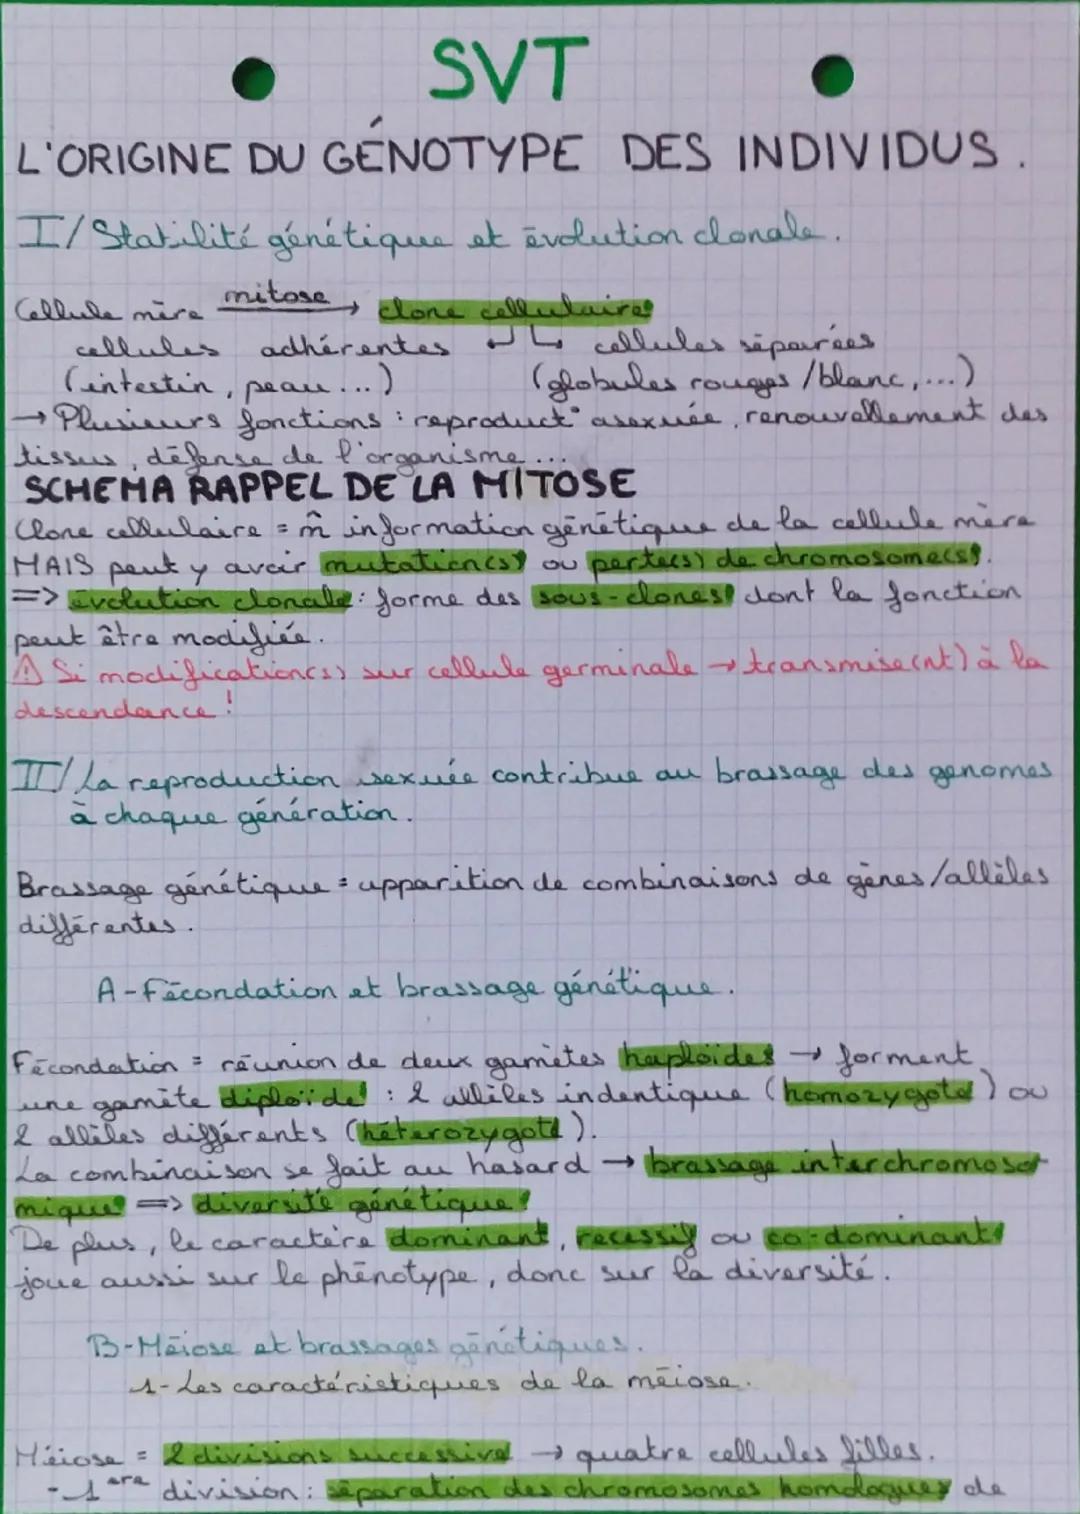 SVT
L'ORIGINE DU GÉNOTYPE DES INDIVIDUS.
I/ Stabilité génétique et évolution clonale.
Cellule mère mitose → clone cellulaire
cellules adhérentes ↵ ↳ cellules séparées
(intestin, peau ...) (globules rouges/blanc, ...)
→ Plusieurs fonctions : reproduct° asexuée, renouvellement des
tissus, défense de l'organisme ...
SCHEMA RAPPEL DE LA MITOSE
Clone cellulaire = m̂ information génétique de la cellule mère
MAIS peut y avoir mutation(s) ou perte(s) de chromosome(s).
=> évolution clonale : forme des sous-clones dont la fonction
peut être modifiée.
⚠ Si modification(s) sur cellule germinale → transmise(nt) à la
descendance !
II/ La reproduction sexuée contribue au brassage des genomes
à chaque génération.
Brassage génétique = apparition de combinaisons de gènes/allèles
différentes.
A - Fécondation et brassage génétique.
Fécondation = réunion de deux gamètes haploïdes → forment
une gamète diploïde : 2 allèles indentique (homozygote) ou
2 allèles différents (hétérozygote).
La combinaison se fait au hasard → brassage interchromoso-
mique => diversité génétique
De plus, le caractère dominant, recessif ou co-dominant
joue aussi sur le phénotype, donc sur la diversité.
B - Méiose et brassages génétiques.
1 - Les caractéristiques de la méiose.
Méiose = 2 divisions successive → quatre cellules filles.
- 1ère division : séparation des chromosomes homologues de